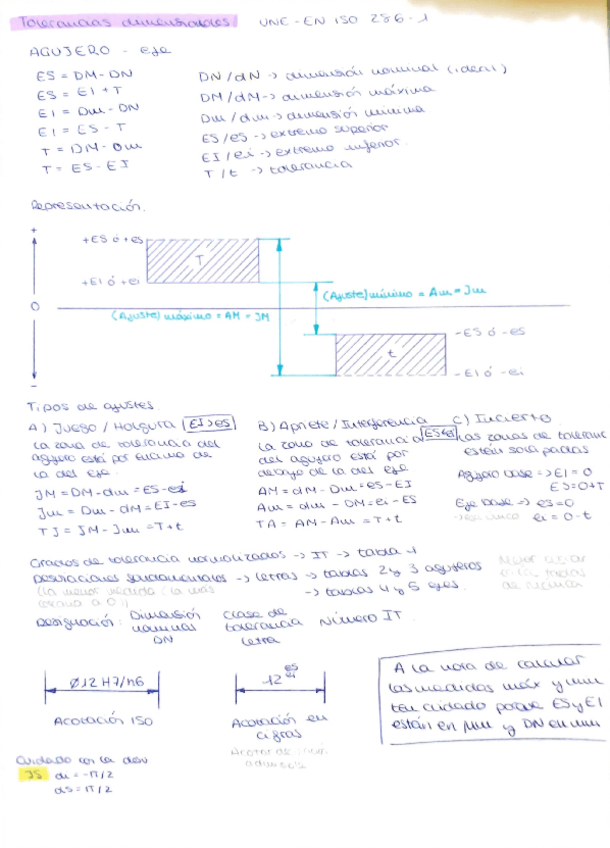 Tolerancias dimensionales UNE-EN ISO 286-1
AGUJERO - eje
ES = DM - DN
ES = EI + T
EI = Dm - DN
EI = ES - T
T = DM - Dm
T = ES - EI
DN/dN -> dimensión nominal (ideal)
DM/dM -> dimensión máxima
Dm/dm -> dimensión mínima
ES/es -> extremo superior
EI/ei -> extremo inferior.
T/t -> tolerancia
Representación.
+
0
-
+ES ó +es
+EI ó +ei
T
(Ajuste) máximo = AM = JM
(Ajuste) mínimo = Am = Jm
t
-ES ó -es
-EI ó -ei
Tipos de ajustes
A) Juego / Holgura EI>es
La zona de tolerancia del
agujero está por encima de
la del eje.
JM = DM - dm = ES - ei
Jm = Dm - dM = EI - es
TJ = JM - Jm = T + t
B) Apriete / Interferencia
ES<ei
La zona de tolerancia
del agujero está por
debajo de la del eje
AM = dM - Dm = es - EI
Am = dm - DM = ei - ES
TA = AM - Am = T + t
C) Incierto
Las zonas de toleranc
están solapadas
Agujero base => EI = 0
ES = 0+T
Eje base -> es = 0
ei = 0 - t
Grados de tolerancia normalizados -> IT -> tabla 1
Desviaciones fundamentales -> letras -> tablas 2 y 3 agujeros
-> tablas 4 y 5 ejes.
(la menor medida: la más
cercana a 0)
Designación: Dimensión nominal DN
Clase de tolerancia letra
Número IT
Ø12 H7/h6
Acotación ISO
12 es ei
Acotación en
cifras
A la hora de calcular
las medidas máx y mín
ten cuidado porque ES y EI
están en μm y DN en mm
Cuidado con la desv
JS di = -IT/2
ds = IT/2